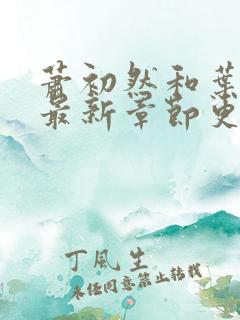 萧初然和葉
最新章節史
丁風生
未经同意禁止转载